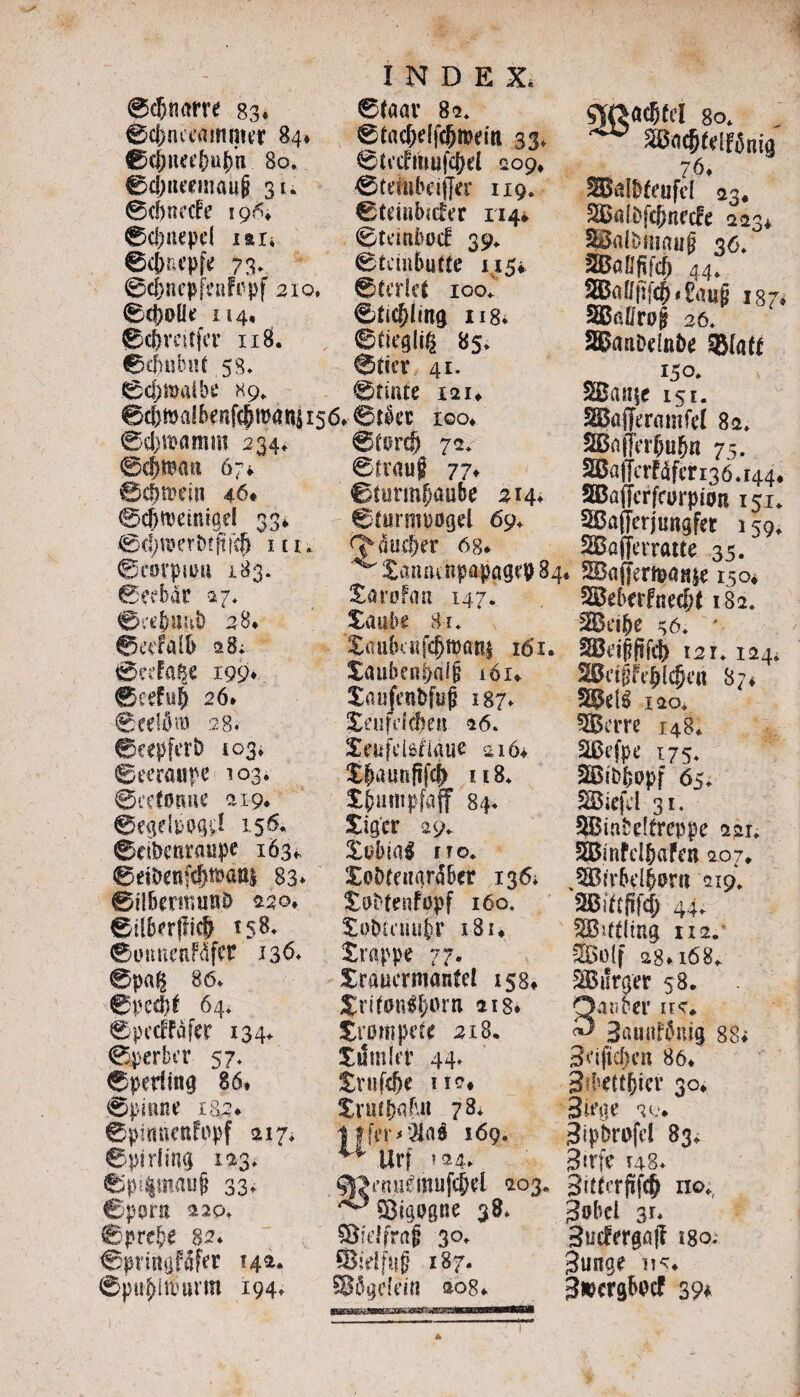 INDEX.
Schnarre 83.
Schneeammer 84.
Schneehuhn 80.
Schneemauß 31.
Schnecke 196.
Schnepel 121.
Schnepfe 73.
Schnepfenkopf 210.
Scholle 114.
Schreitser 118.
Schubut 58.
Schwalbe 89.
Schwalbenschwanz 156.
Schwamm 234.
Schwan 67.
Schwein 46.
Schweinigel 33.
Schwerdtfisch 111.
Scorpion 183.
Seebär 27.
Seehund 28.
Seekalb 28.
Seekatze 199.
Seekuh 26.
Seelöw 28.
Seepferd 103.
Seeraupe 103.
Seetonne 219.
Segelvogel 156.
Seidenraupe 163.
Seidenschwanz 83.
Silbermund 220.
Silberstich 158.
Sonnenkäfer 136.
Spatz 86.
Specht 64.
Speckkäfer 134.
Sperber 57.
Sperling 86.
Spinne 182.
Spinnenkopf 217.
Spirling 123.
Spitzmauß 33.
Sporn 220.
Sprehe 82.
Springkäfer 142.
Spuhlwurm 194.
Staar 82.
Stachelschwein 33.
Steckmuschel 209.
Steinbeisser 119.
Steinbicker 114.
Steinbock 39.
Steinbutte 115.
Sterlet 100.
Stichling 118.
Stieglitz 85.
Stier 41.
Stinte 121.
Stör 100.
Storch 72.
Strauß 77.
Sturmhaube 214.
Sturmvogel 69.
Täucher 68.
Tannenpapagey 84.
Tarokan 147.
Taube 81.
Taubenschwanz 161.
Taubenhalß 161.
Tausendfuß 187.
Teufelchen 26.
Teufelsklaue 216.
Thaunfisch 118.
Thumpfaff 84.
Tiger 29.
Tobias 110.
Todtengräber 136.
Todtenkopf 160.
Todtenuhr 181.
Trappe 77.
Trauermantel 158.
Tritonshorn 218.
Trompete 218.
Tümler 44.
Trusche 112.
Truthahn 78.
Ufer-Aas 169.
Urf 124.
Venusmuschel 203.
Vigogne 38.
Vielfraß 30.
Vielfuß 187.
Vögelein 208.
Wachtel 80.
Wachtelkönig
76.
Waldteufel 23.
Waldschnecke 223.
Waldmauß 36.
Wallfisch 44.
Wallfisch-Lauß 187.
Wallroß 26.
Wandelnde Blatt
150.
Wanze 151.
Wasseramsel 82.
Wasserhuhn 75.
Wasserkäfer 136. 144.
Wasserscorpion 151.
Wasserjungfer 159.
Wasserratte 35.
Wasserwanze 150.
Weberknecht 182.
Weihe 56.
Weißfisch 121. 124.
Weißkehlchen 87.
Wels 120.
Werre 148.
Wespe 175.
Widhopf 65.
Wiesel 31.
Windeltreppe 221.
Winkelhafen 207.
Wirbelhorn 219.
Wittfisch 44.
Wittling 112.
Wolf 28. 168.
Würger 58.
Zander 115.
Zaunkönig 88.
Zeischen 86.
Zibettthier 30.
Ziege 39.
Zipdrosel 83.
Zirse 148.
Zitterfisch 110.
Zobel 31.
Zuckergast 180.
Zunge 115.
Zwergbock 39.